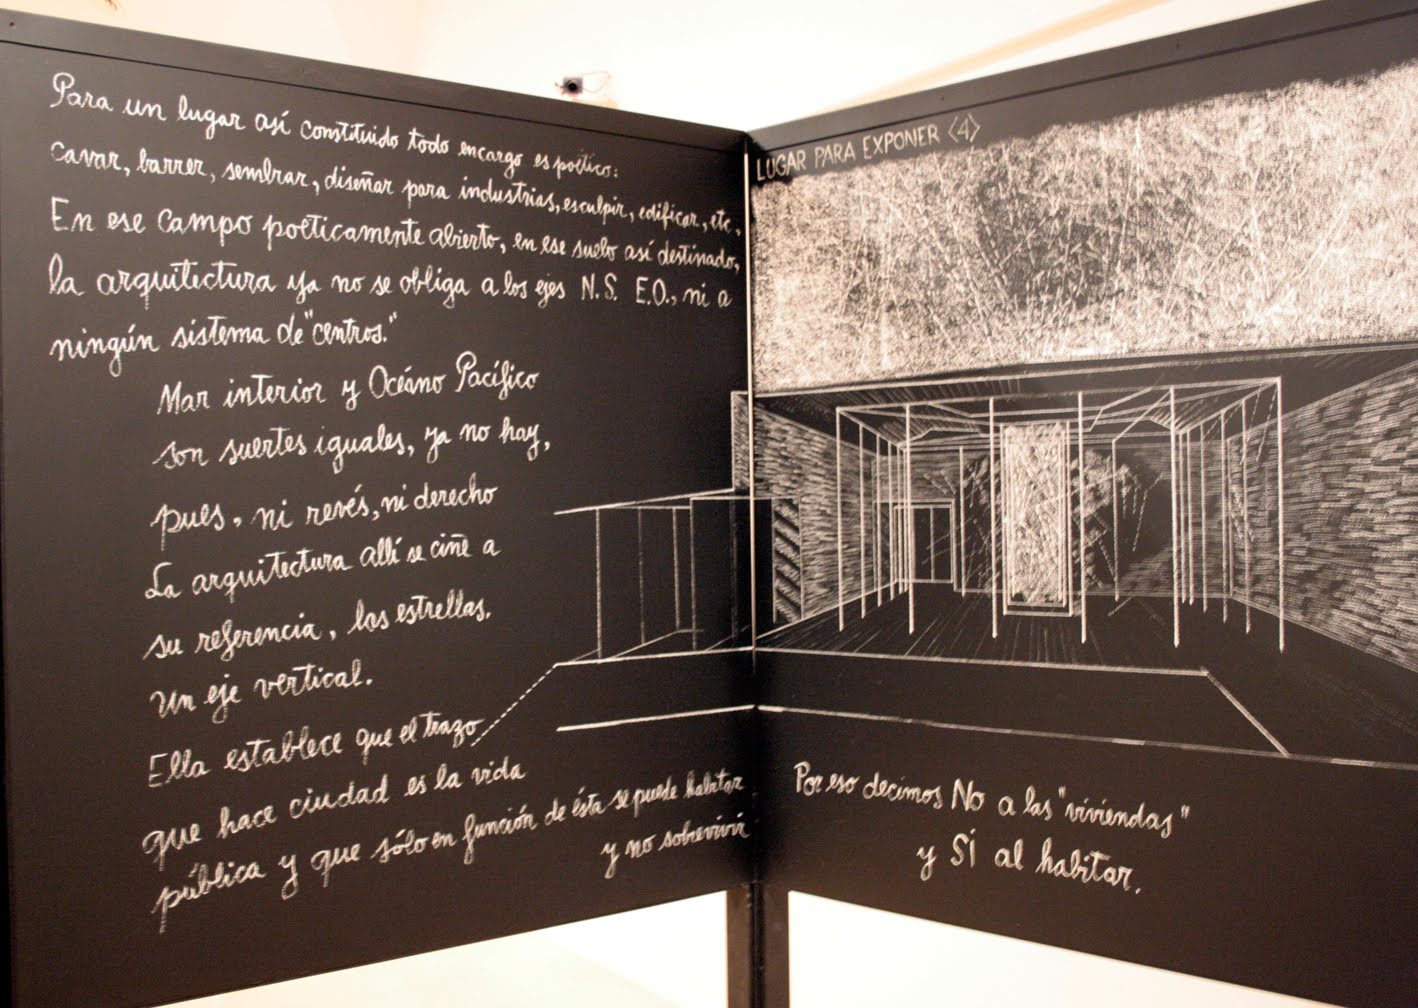 Para un lugar así constituido todo encargo es poético:
cavar, barrer, sembrar, diseñar para industrias, esculpir, edificar, etc.
En ese campo poéticamente abierto, en ese suelo así destinado,
la arquitectura ya no se obliga a los ejes N.S. E.O., ni a
ningún sistema de "centros."
Mar interior y Océano Pacífico
son suertes iguales, ya no hay,
pues, ni revés, ni derecho
La arquitectura allí se ciñe a
su referencia, las estrellas.
Un eje vertical.
Ella establece que el trazo
que hace ciudad es la vida
pública y que sólo en función de ésta se puede habitar
y no sobrevivir
LUGAR PARA EXPONER <4>
Por eso decimos No a las "viviendas"
y SÍ al habitar.